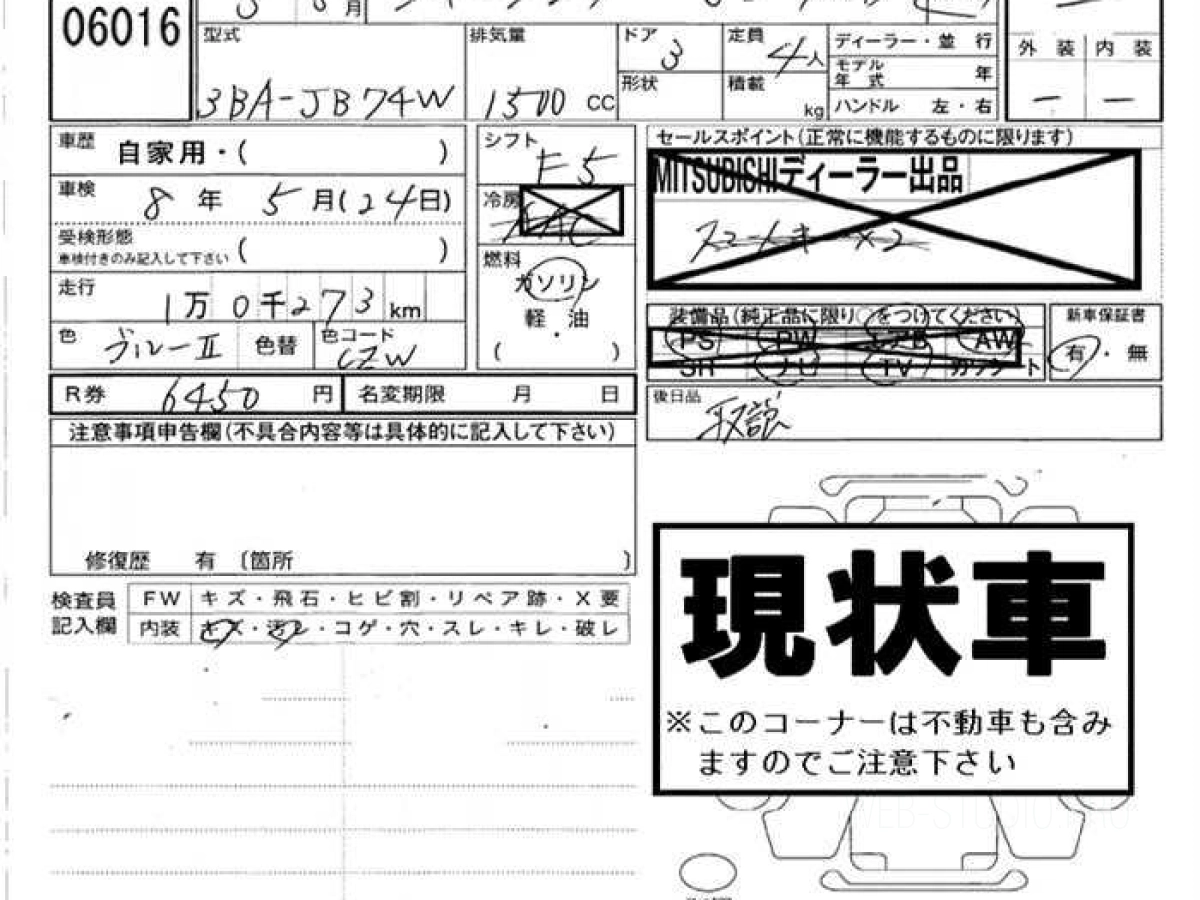 06016
月
型式
3BA-JB74W
排気量
1500 CC
ドア
3
定員
4人
形状
積載
kg
ディーラー・並 行
モデル
年 式 年
ハンドル 左・右
外 装 内 装
ー ー
車歴
自家用・( )
車検
8年 5月(24日)
受検形態
車検付きのみ記入して下さい ( )
走行
1万0千273km
色
ブルーII
色替
色コード
CZW
シフト
F5
冷房
AAC
燃料
ガソリン
軽・油
( )
セールスポイント(正常に機能するものに限ります)
MITSUBISHIディーラー出品
スマートキー ×2
装備品(純正品に限り○をつけてください)
PS PW エアB AW
SH ナビ TV カワシート
新車保証書
有・無
R券 6450 円
名変期限 月 日
後日品
取説
注意事項申告欄(不具合内容等は具体的に記入して下さい)
修復歴 有 〔箇所 〕
検査員
記入欄
FW キズ・飛石・ヒビ割・リペア跡・X要
内装 キズ・汚レ・コゲ・穴・スレ・キレ・破レ
現状車
※このコーナーは不動車も含み
ますのでご注意下さい